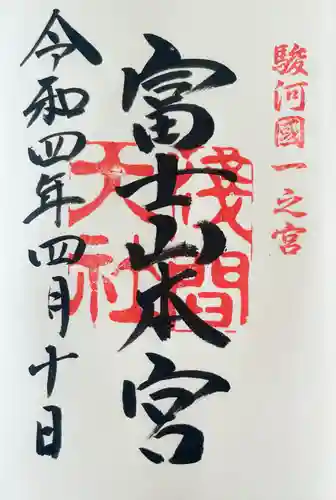 駿河國一之宮
富士山本宮
淺間
天社
令和四年四月十日